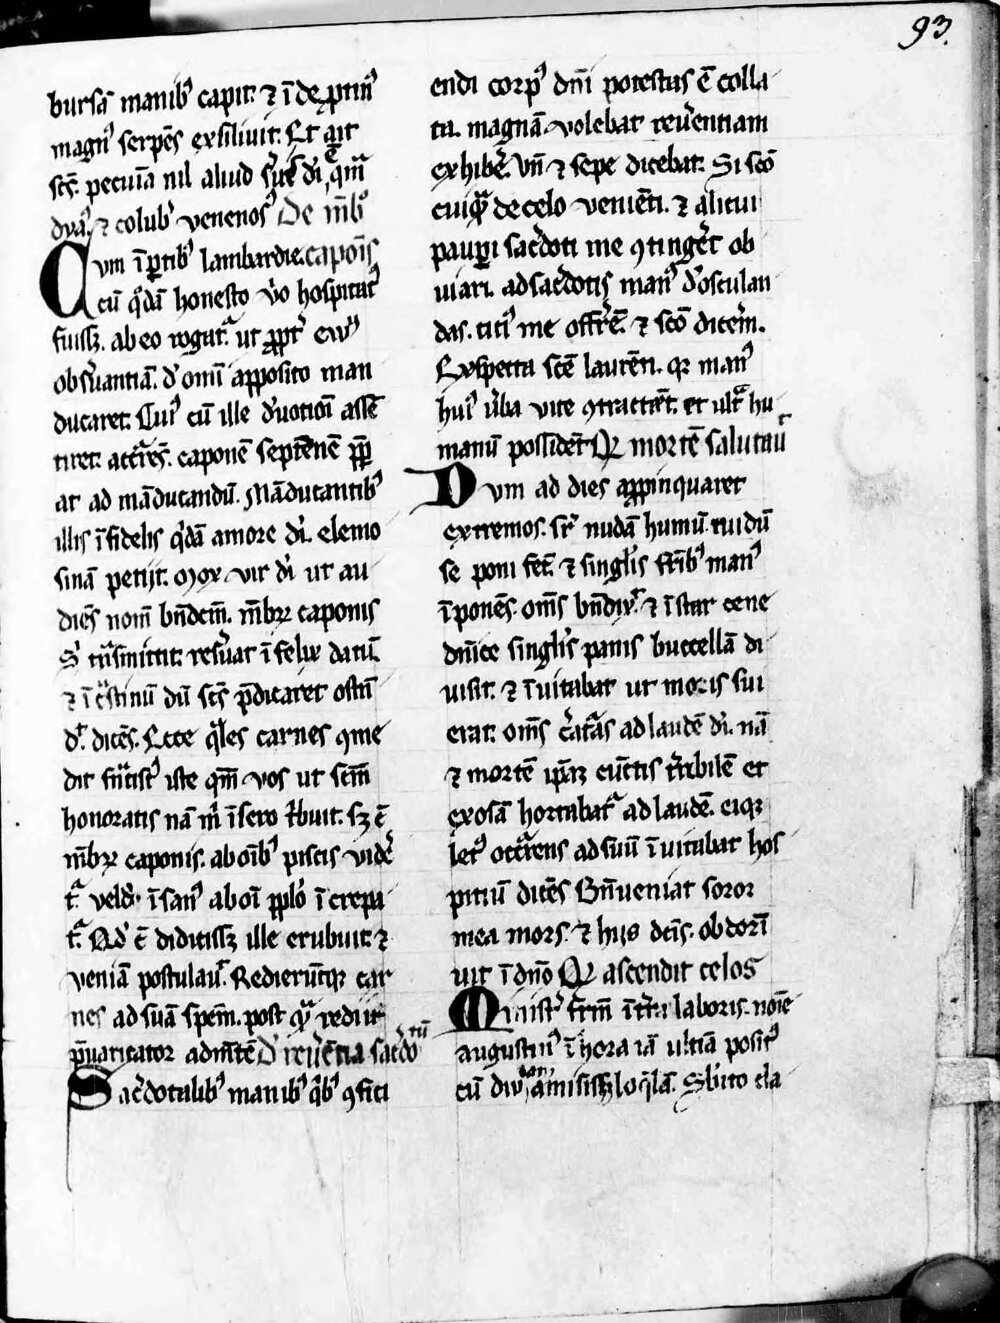 93.
bursā manib⁹ capit. ⁊ īde ꝓtin⁹
magn⁹ serpēs exsiliuit. Et ait
sc̄s. pecūia nil aliud ẜuis dī ē, qͣm
dya⁹. ⁊ colub⁹ venenos⁹ De m̄b⁹
Cvm ī ꝑtib⁹ lambardie. caponis
cū qͦdā honesto v̓o hospitat⁹
fuiss₃. ab eo rogatͬ. ut ꝓpt̓ ew̄
obẜuantiā. d̓ omī apposito man
ducaret. Cui⁹ cū ille d̓uotioī assē
tiret. accͬes̄. caponē septēnē p̄p
at ad māducandū. Māducantib⁹
illis īfidelis qͥdā amore dī. elemo
sinā petijt. Mox vir dī ut au
diēs nom̄ bn̄dcm̄. m̄bꝝ caponis
s̄ trͣsmittit. reẜuat īfelix datū
⁊ ī cͣstinū dū sc̄s p̄dicaret ostn̄
dͭ. dicēs. Ecce qͣles carnes ꝯme
dit frͣtist⁹ iste qm̄ vos ut scm̄
honoratis nā m̄ īsero t̓buit. s₃ ē
m̄bꝝ caponis. ab oīb⁹ piscis vid̓e
tͬ. veld̓ īsan⁹ ab oī pplo īcrepa
tͬ. Qd̓ ē didiciss₃ ille erubuit. ⁊
veniā postulauͭ. Redierūtqꝫ car
nes ad suā spem̄. postqͣ rediit
p̄uaricator ad mētē D̓ reu̓entia sac̓dotū
Sac̓dotalib⁹ manib⁹ qͥb⁹ ꝯfici
endi corp⁹ dn̄i potestas ē colla
ta. magnā volebat reu̓entiam
exhib̓e. vn̄ ⁊ sepe dicebat. Si sc̄o
cuiqͣ de celo veniēti. ⁊ alicui
paupeꝛi sac̓doti me ꝯting̓et ob
uiari. ad sac̓dotis man⁹ d̓osculan
das. citi⁹ me offr̓ē. ⁊ sc̄o dicer̄m.
Exspecta sc̄e laurēti. qꝛ man⁹
hui⁹ v̓ba vite ꝯtractāt. et ultͣ hu
manū possidēt Qͬ mortē salutauͭ
Dvm ad dies appinquaret
extremos. sr̄ nudā humū. nudū
se poni fec̄. ⁊ singl̓is fr̄ib⁹ man⁹
īponēs. om̄s bn̄dix̓. ⁊ īstar cene
dn̄ice singl̓is panis buccellā di
uisit. ⁊ īuitabat ut moris sui
erat. om̄s c̓atͣas ad laudē dī. nā
⁊ mortē ip̄aꝫ cūctis tr̓ribilē et
exosā hortabatͬ ad laudē. eiqꝫ
let⁹ occͬrens ad suū īuitabat hos
pitiū dicēs Bn̄ueniat soror
mea mors. ⁊ hijs dc̄is. obdorī
uit ī dn̄o Qͬ ascendit celos
Minist̓ frm̄ ī tr̄a laboris. noīe
augustin⁹ ī hora iā ultiā posit⁹
cū diw̄ aīa amisiss₃ loq̄lā. Sb̓ito cla